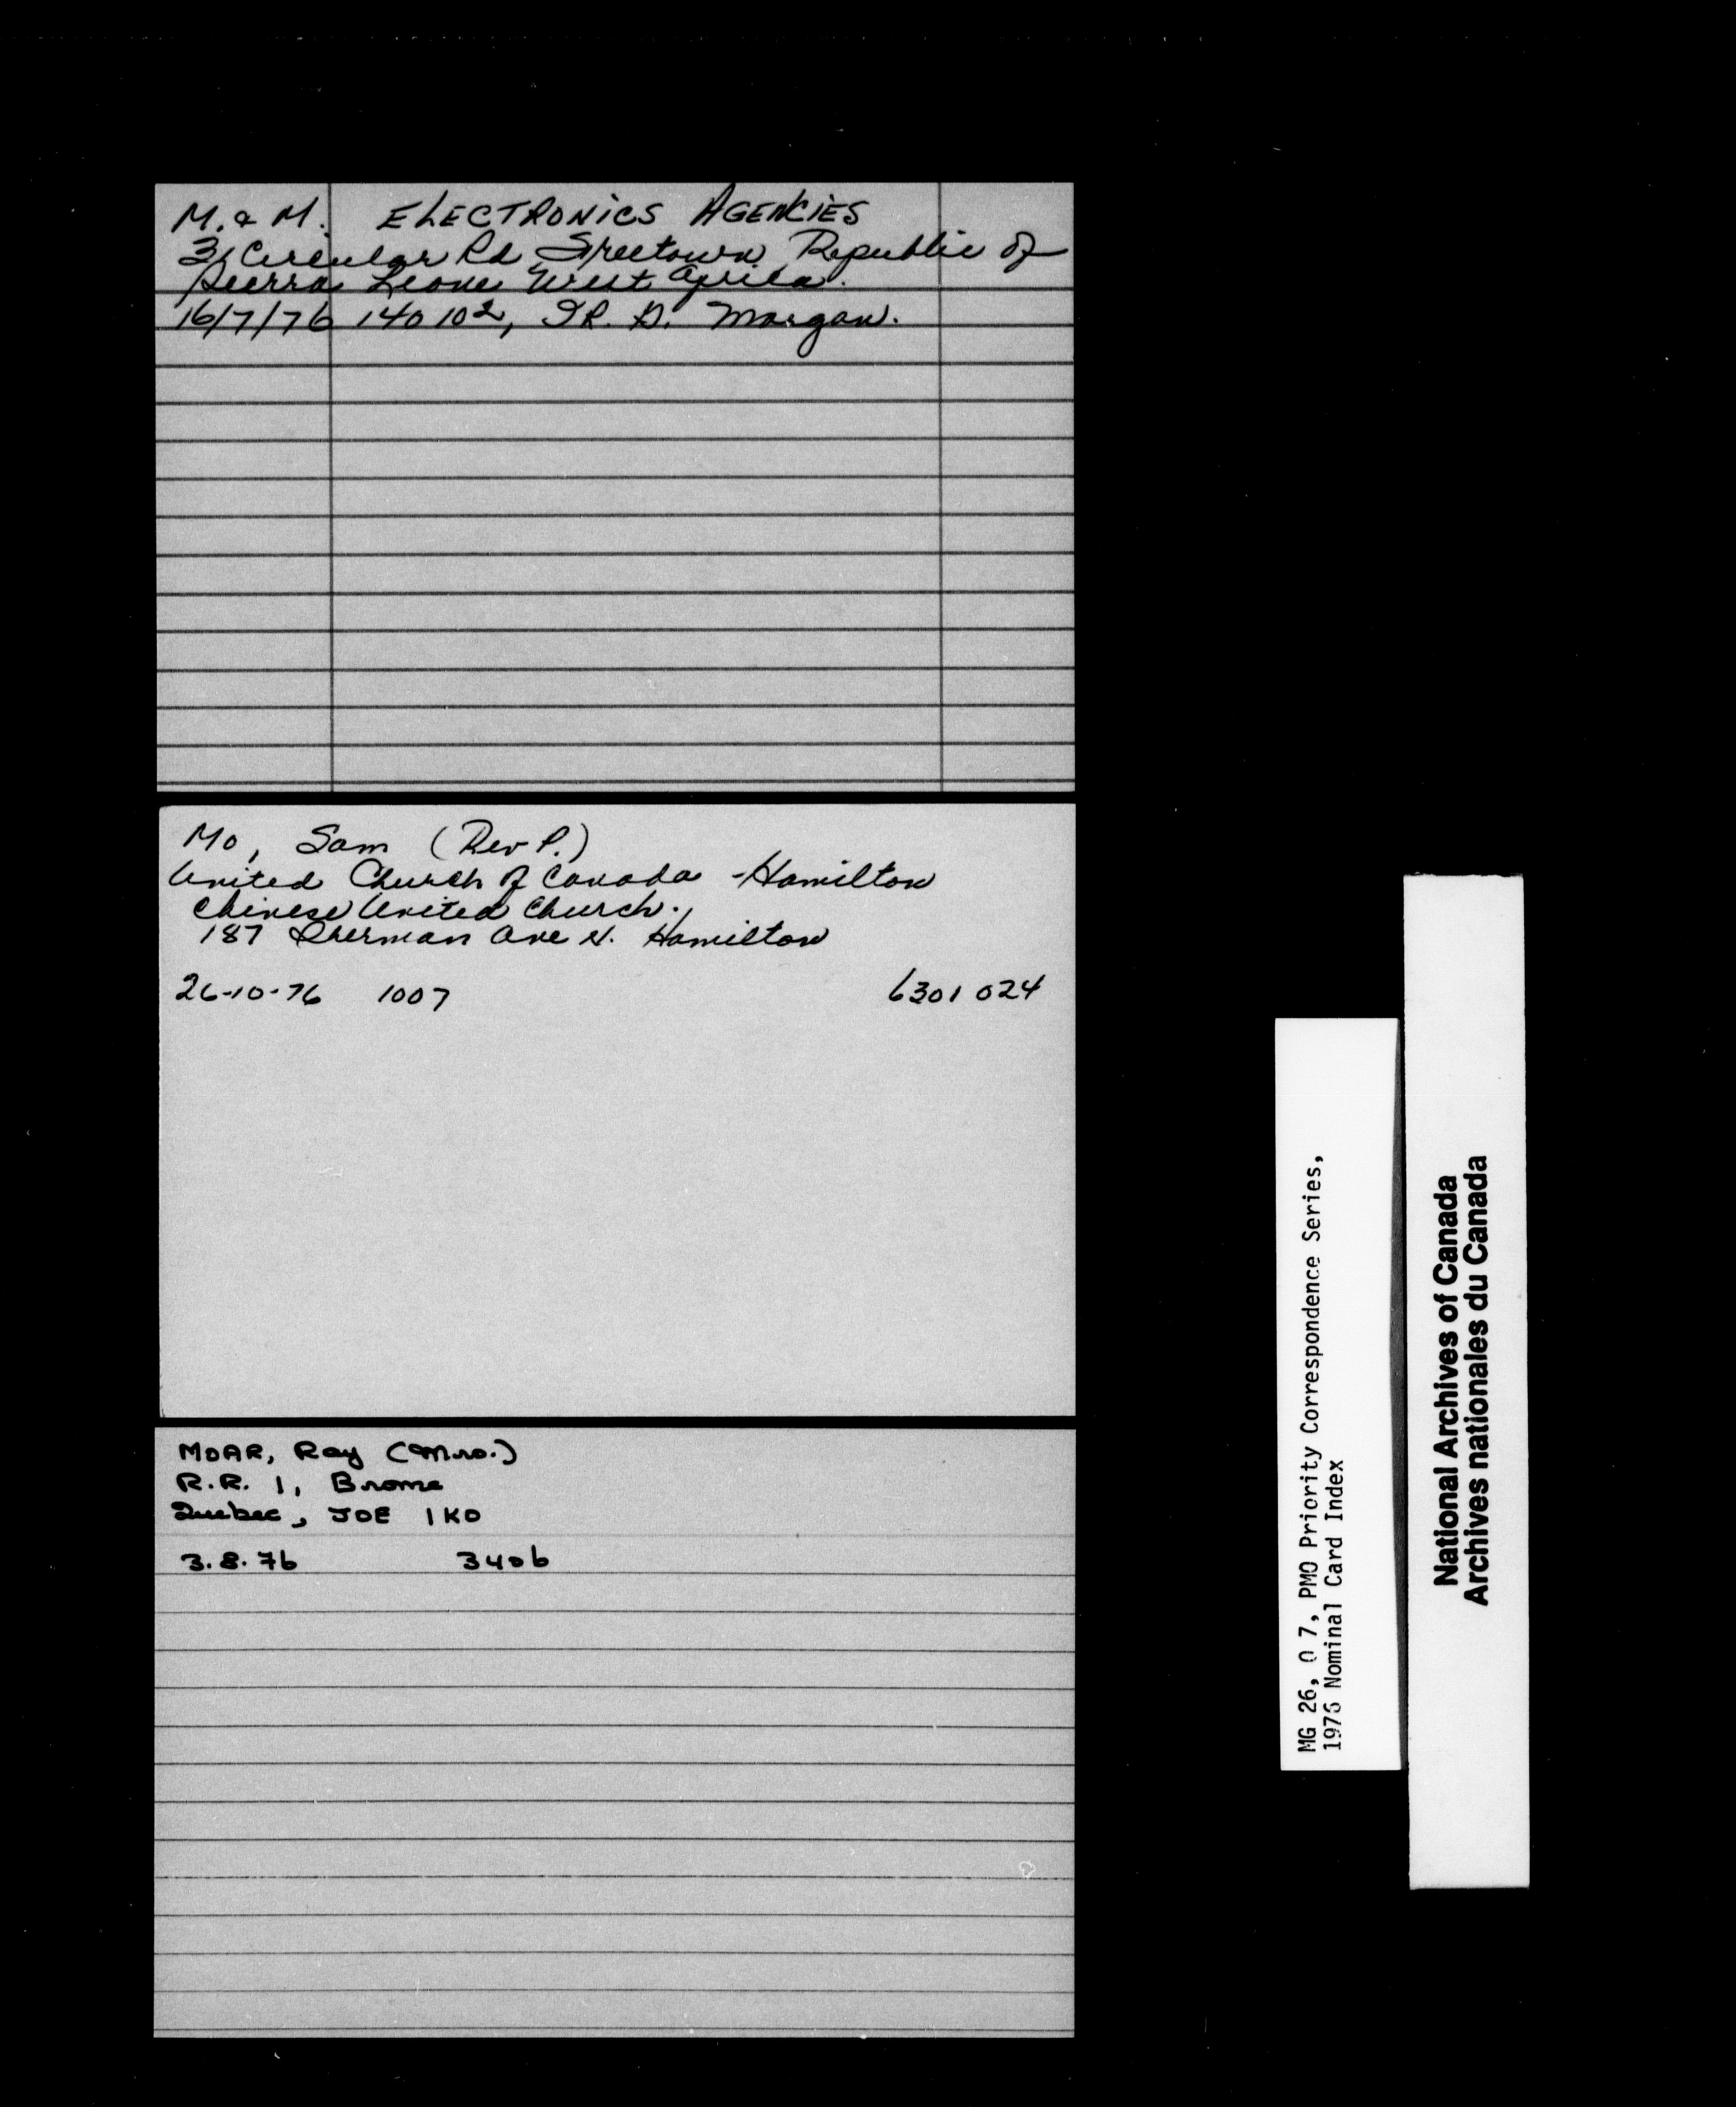 M. & M. ELECTRONICS AGENCIES
3, Circular Rd, Freetown, Republic of
Sierra Leone West Africa.
16/7/76 140 102, D. Morgan.
Mo, Sam (Rev P.)
United Church of Canada - Hamilton
Chinese United Church.
187 Sherman Ave N. Hamilton
26-10-76 1007 6301 024
MOAR, Ray (Mrs.)
R.R. 1, Brome
Quebec, JOE 1KO
3.8.76 3406
MG 26, O 7, PMO Priority Correspondence Series,
1976 Nominal Card Index
National Archives of Canada
Archives nationales du Canada